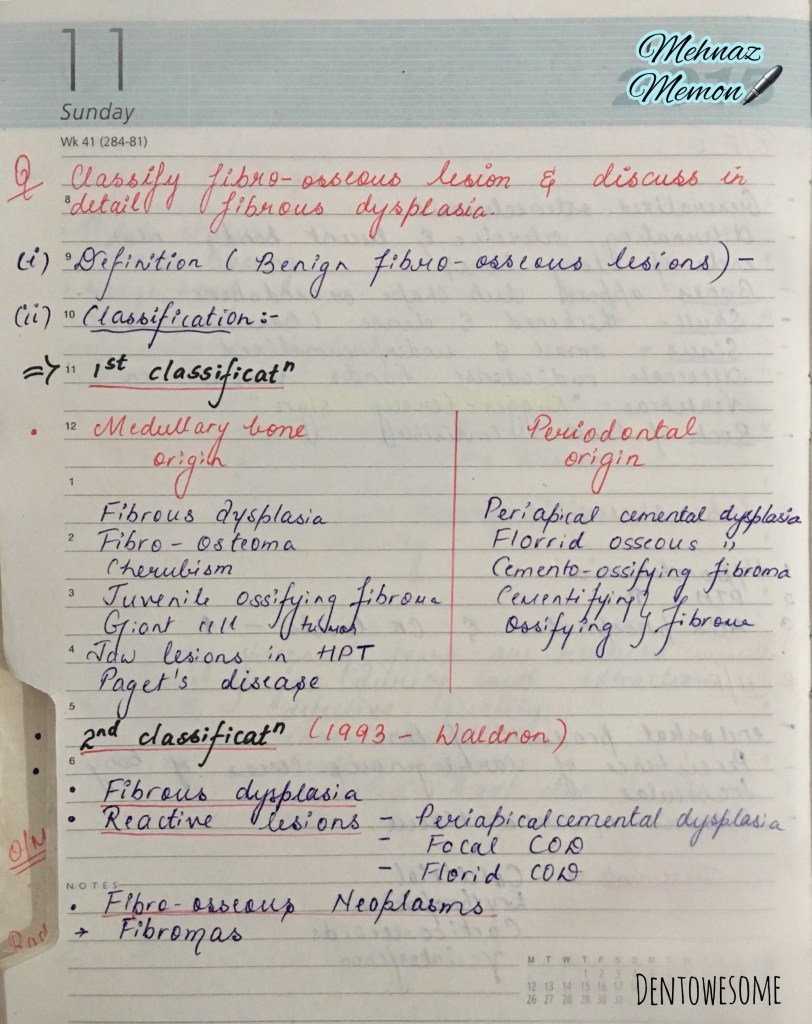 11
Sunday
Wk 41 (284-81)
Mehnaz
Memon
2015
Q Classify fibro-osseous lesion & discuss in
8 detail fibrous dysplasia.
(i) 9 Definition (Benign fibro-osseous lesions) -
(ii) 10 Classification:-
⇒ 11 1st classificatn
• 12 Medullary bone
origin
Periodontal
origin
1
Fibrous dysplasia
2 Fibro-Osteoma
Cherubism
3 Juvenile ossifying fibroma
Giant cell tumor
4 Jaw lesions in HPT
Paget's disease
Periapical cemental dysplasia
Florrid osseous "
Cemento-ossifying fibroma
Cementifying
Ossifying } fibroma
5
• 2nd classificatn (1993 - Waldron)
•
6
• Fibrous dysplasia
• Reactive lesions - Periapical cemental dysplasia
- Focal COD
- Florid COD
O/M
NOTES
• Fibro-osseous Neoplasms
→ Fibromas
Rad
M T W T F S S
12 13 14 15 16 17 18
DENTOWESOME